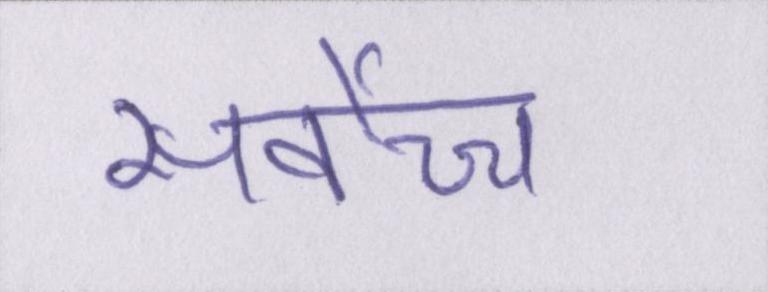 सर्वोच्च